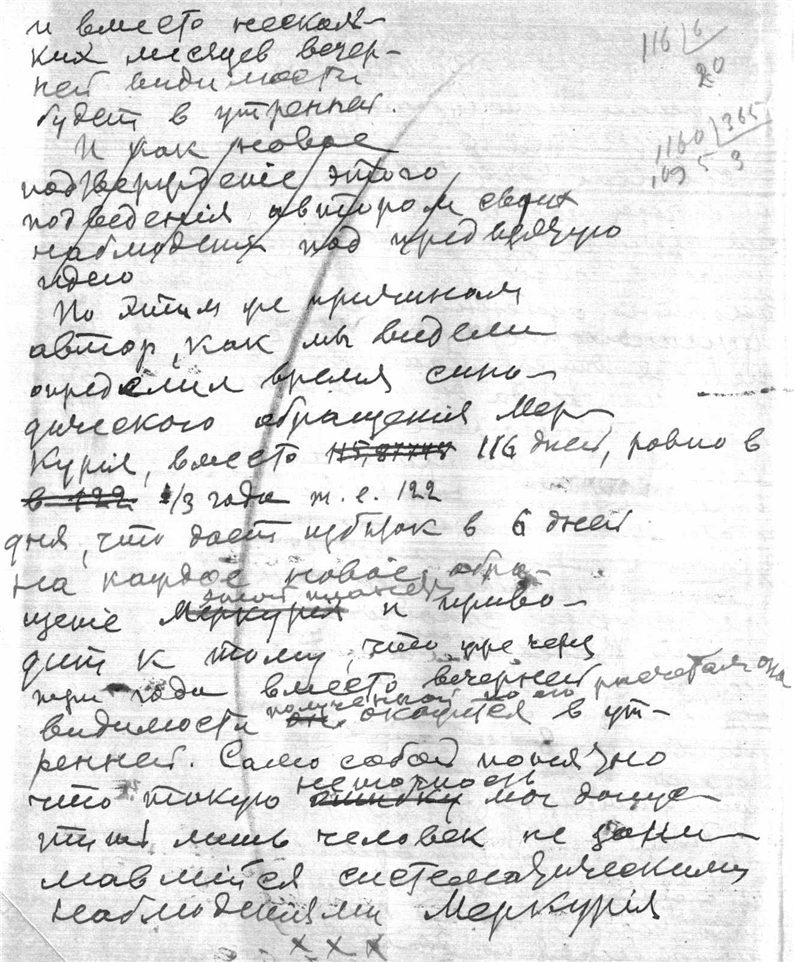 и вместо несколь-
ких месяцев вечер-
ней видимости
будет в утренней.
И как новое
подтверждение этого
подведения автором своих
наблюдений под предвзятую
идею
По этим же причинам
автор, как мы видели
определил время сино-
дического обращения Мер-
курія, вместо 115,87748 116 дней, ровно в
в 122 1/3 года т. е. 122
дня, что дает избыток в 6 дней
на каждое новое обра-
этой планеты
щение Меркурія и приво-
дит к тому, что уже через
три года вместо вечерней
полученной по его расчетам она
видимости он окажется в ут-
ренней. Само собой понятно
неточность
что такую ошибку мог допус-
тить лишь человек не зани-
мавшийся систематическими
наблюдениями Меркурія
x x x
116 6
20
1160 365
1095 3